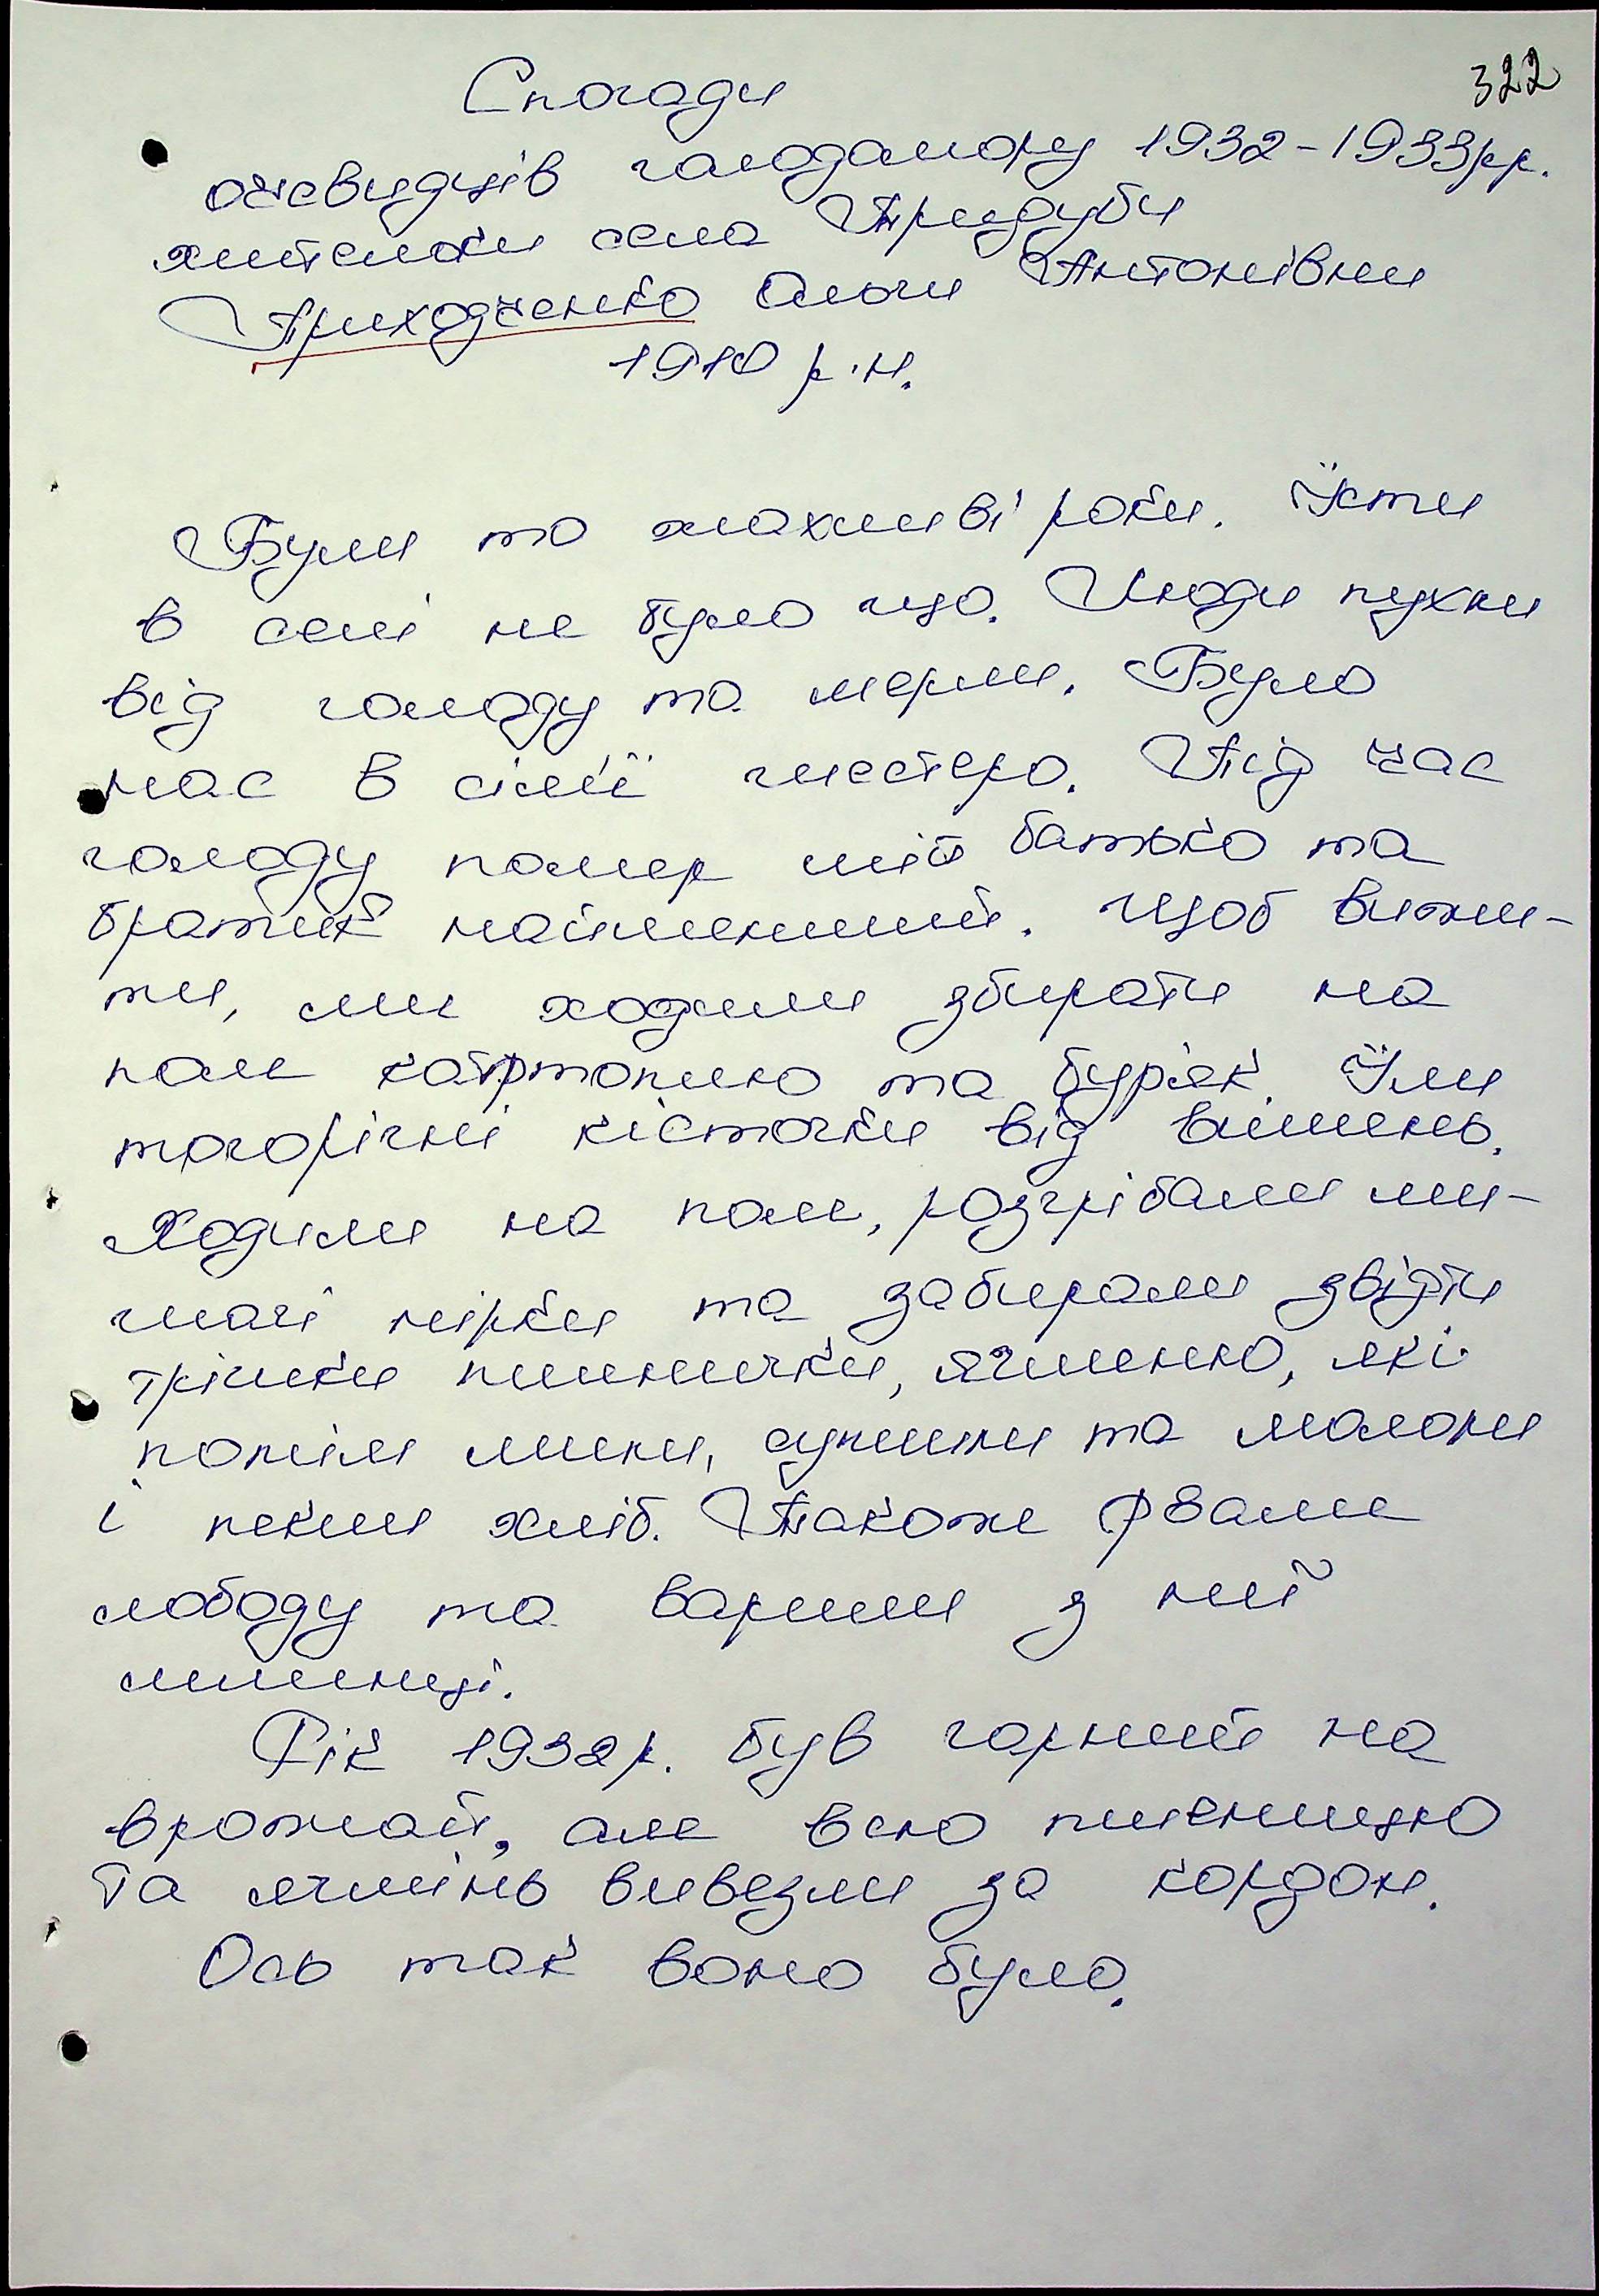 322
Спогади
очевидців голодомору 1932-1933рр.
жительки села Придуби
Приходченко Ольги Антонівни
1910 р.н.
Були то жахливі роки. Їсти
в селі не було що. Люди пухли
від голоду та мерли. Було
нас в сім'ї шестеро. Під час
голоду помер мій батько та
братик найменший. Щоб вижи-
ти, ми ходили збирати на
поле картоплю та буряк. Їли
торорічні кісточки від вишень.
Ходили на поле, розгрібали ми-
шачі нірки та забирали звідти
трішки пшенички, ячменю, які
потім мили, сушили та мололи
і пекли хліб. Також рвали
лободу та варили з неї
млинці.
Рік 1932р. був гарний на
врожай, але всю пшеницю
та ячмінь вивезли за кордон.
Ось так воно було.